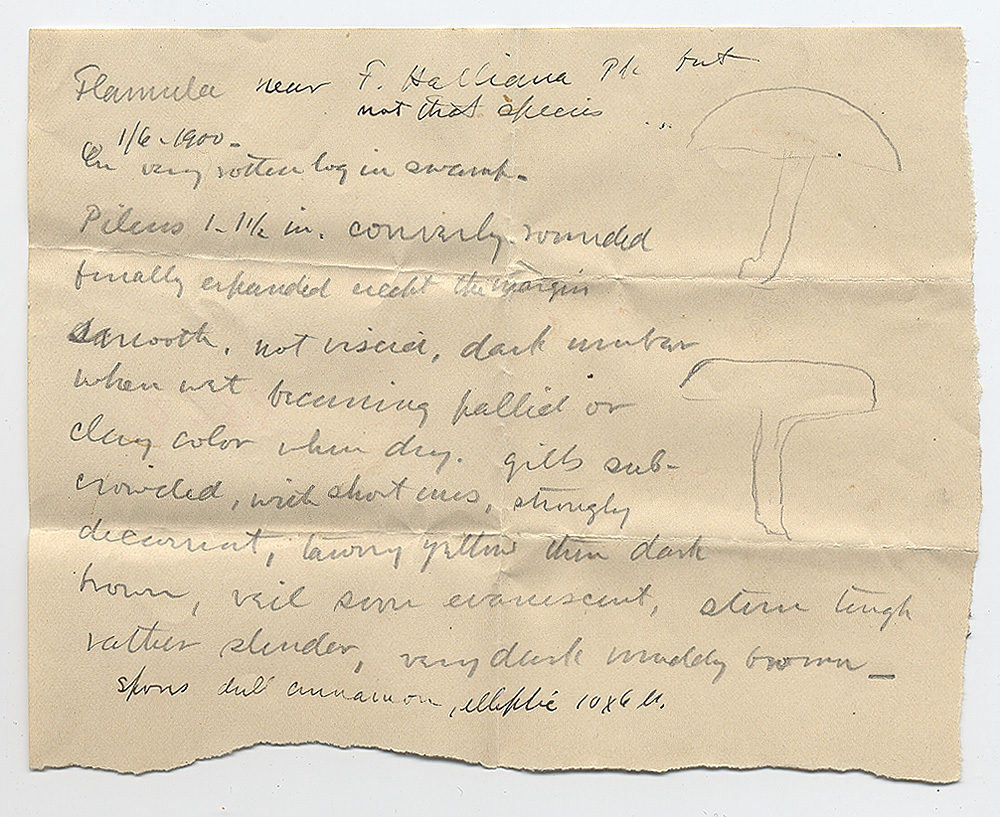 Flammula near F. Halliana Pk but
not that species
1/6-1900-
On very rotten log in swamp-
Pileus 1-1½ in. convexly rounded
finally expanded except the margin
smooth, not viscid, dark umber
when wet becoming pallid or
clay color when dry. gills sub-
crowded, with short ones, strongly
decurrent, tawny yellow then dark
brown, veil soon evanescent, stem tough
rather slender, very dark muddy brown-
spores dull cinnamon, elliptic 10x6 u.